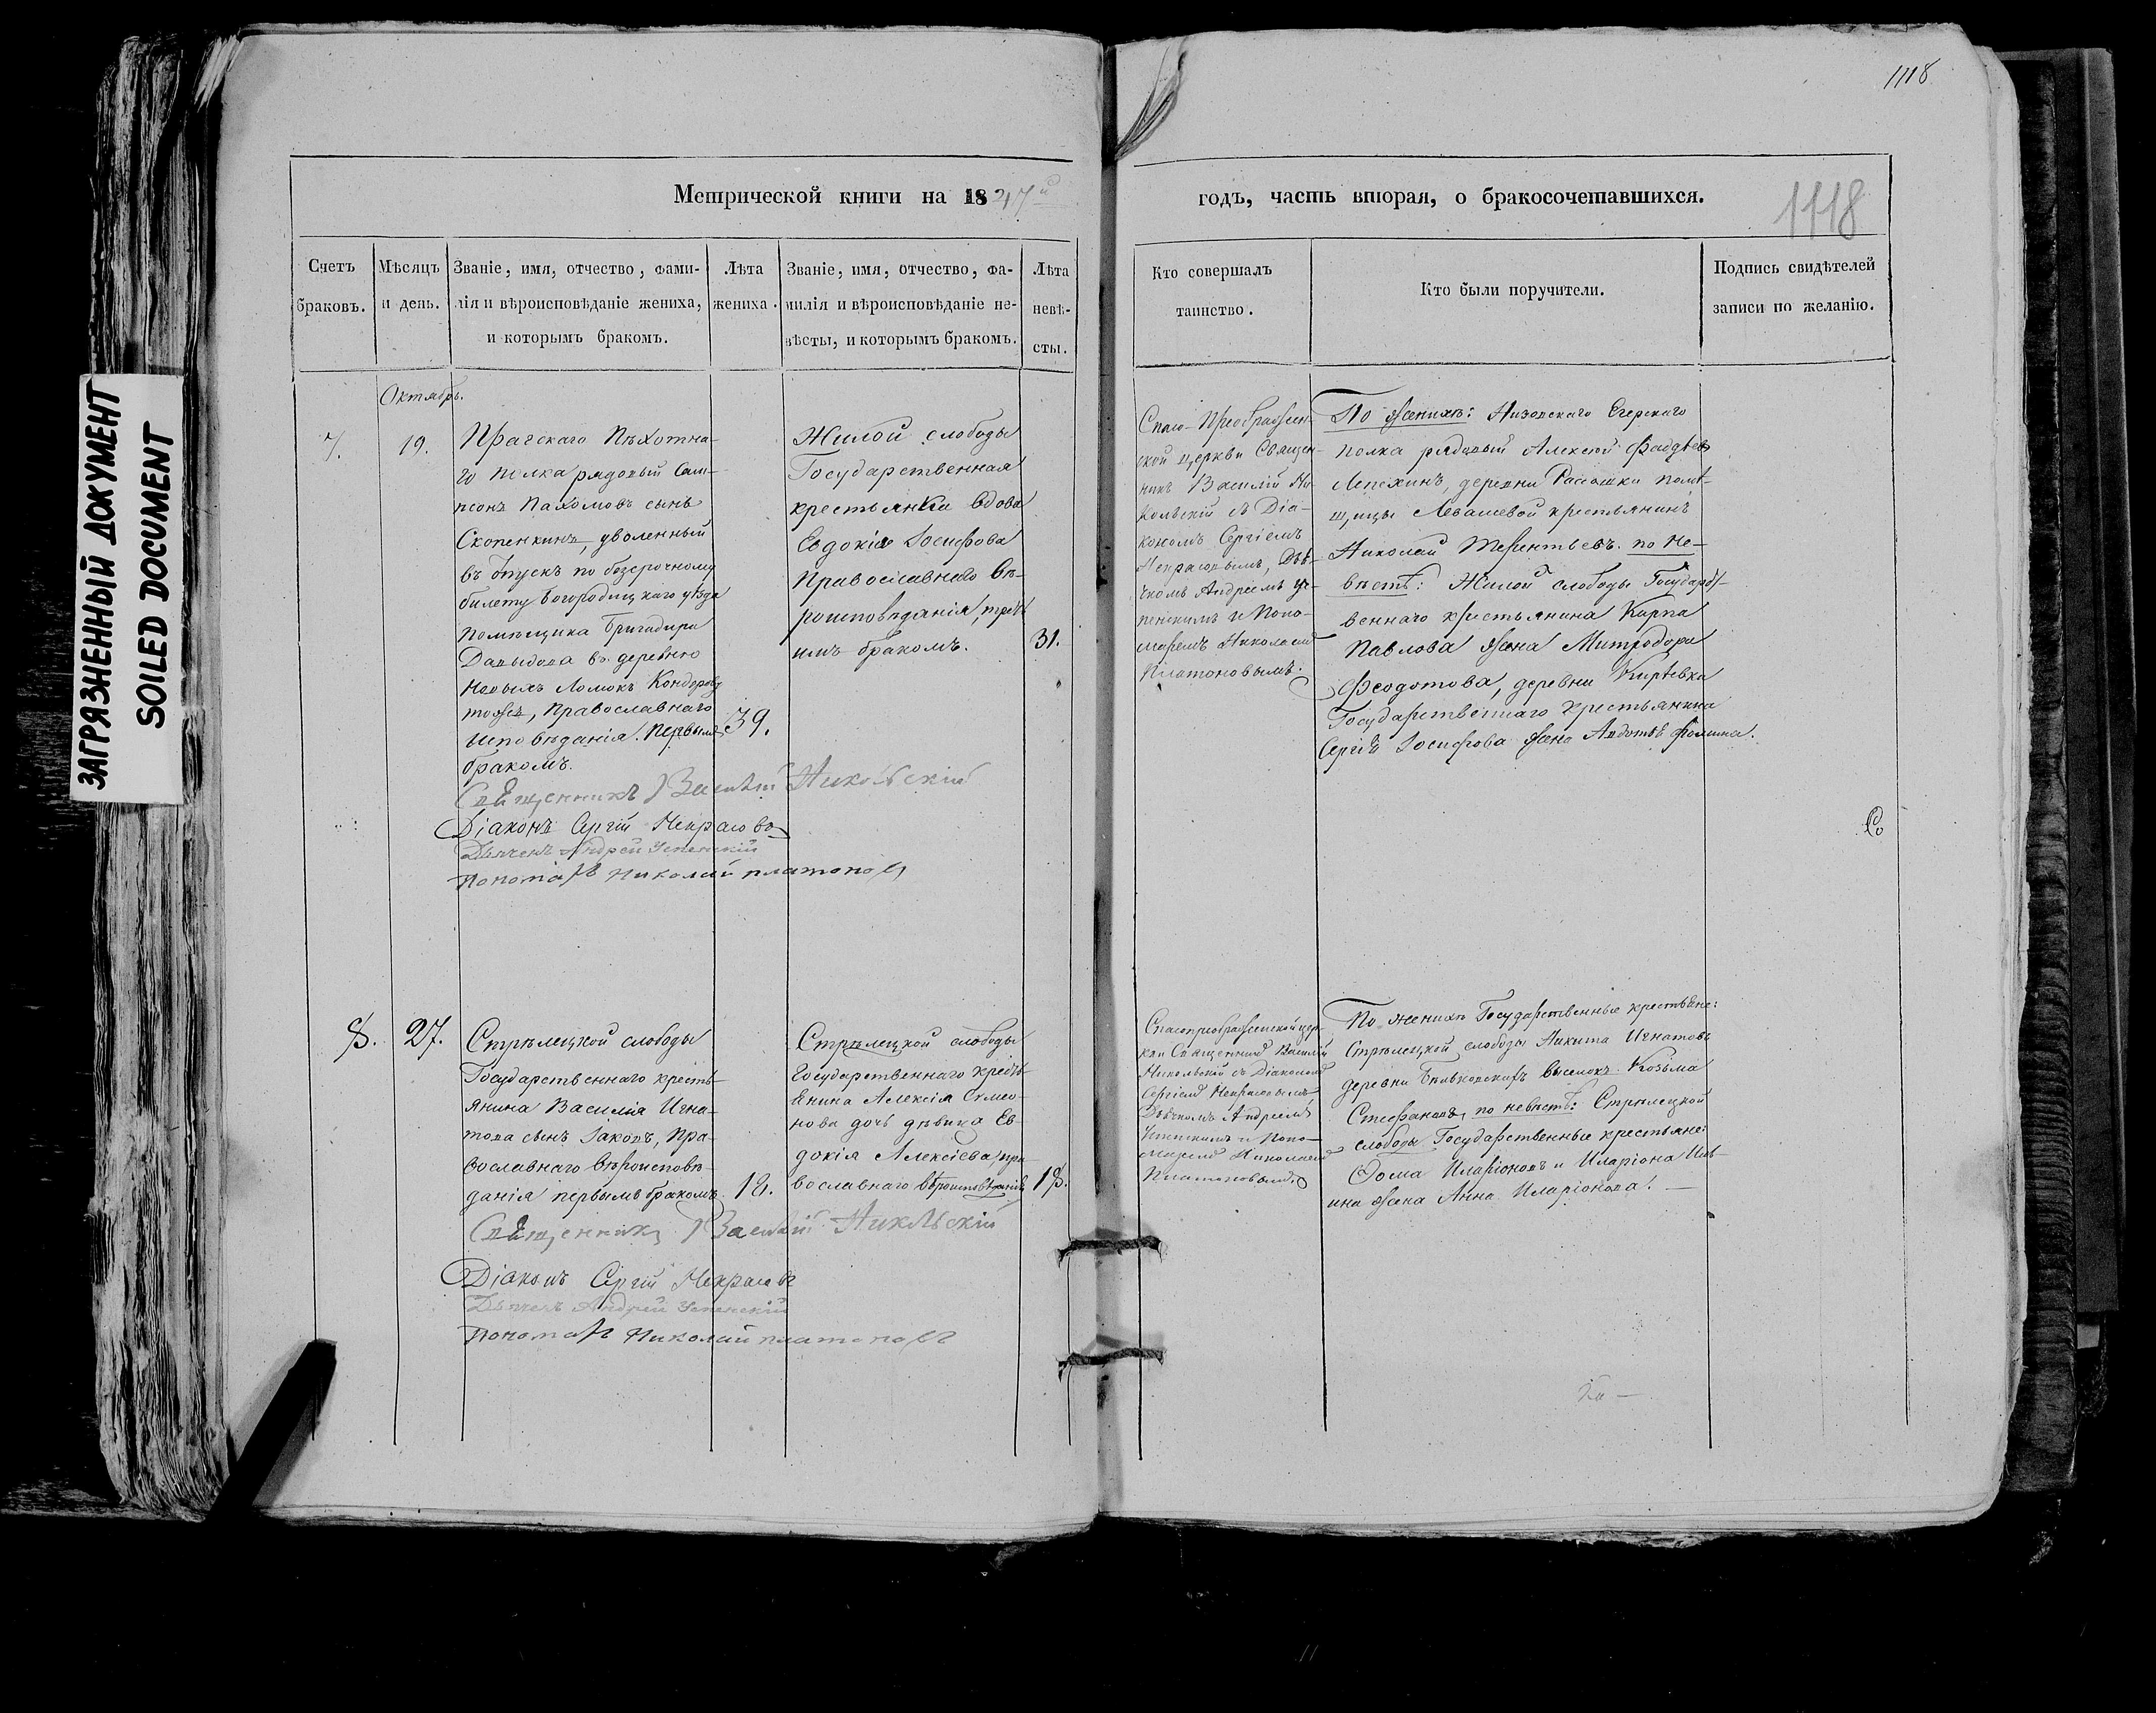 1118
ЗАГРЯЗНЕННЫЙ ДОКУМЕНТ
SOILED DOCUMENT
Метрической книги на 1847й
годъ, часть вторая, о бракосочетавшихся.
1118
Счетъ
браковъ.
Мѣсяцъ
и день.
Званіе, имя, отчество, фами-
лія и вѣроисповѣданіе жениха,
и которымъ бракомъ.
Лѣта
жениха.
Званіе, имя, отчество, фа-
милія и вѣроисповѣданіе не-
вѣсты, и которымъ бракомъ.
Лѣта
невѣ-
сты.
Кто совершалъ
таинство.
Кто были поручители.
Подпись свидѣтелей
записи по желанію.
Октябрь.
7.
19.
Прагскаго Пѣхотна-
го полка рядовый Сам-
псонъ Пахомовъ сынъ
Скопенкинъ, уволенный
въ отпускъ по безсрочному
билету Богородицкаго уѣзда
помѣщика Бригадира
Давыдова въ деревню
Новыхъ Ломокъ Кондоровку
тожъ, Православнаго
исповѣданія. Первымъ
бракомъ.
39.
Жилой слободы
Государственная
крестьянка вдова
Евдокія Іосифова
Православнаго вѣ-
роисповѣданія, треть
имъ бракомъ.
31.
Спасо-Преображен-
ской церкви Священ-
никъ Василій Ни-
кольскій съ Діа-
кономъ Сергіемъ
Некрасовымъ, Дья-
чкомъ Андреемъ Ус-
пенскимъ и Поно-
маремъ Николаемъ
Платоновымъ.
По женихѣ: Низовскаго Егерскаго
полка рядовый Алексѣй Фадѣевъ
Лепехинъ, деревни Рассошки помѣ-
щицы Левашевой крестьянинъ
Николай Терентьевъ. по не-
вѣстѣ: Жилой слободы Государст-
веннаго крестьянина Карпа
Павлова жена Митродора
Феодотова, деревни Кирѣевки
Государственнаго крестьянина
Сергѣя Іосифова жена Авдотья Фомина.
Священникъ Василій Никольскій
Діаконъ Сергій Некрасовъ
Дьячекъ Андрей Успенскій
Пономарь Николай Платоновъ
8.
27.
Стрѣлецкой слободы
Государственнаго кресть-
янина Василія Игна-
това сынъ Іаковъ, Пра-
вославнаго вѣроисповѣ-
данія первымъ бракомъ.
18.
Стрѣлецкой слободы
Государственнаго кресть-
янина Алексія Симео-
нова дочь дѣвица Ев-
докія Алексіева, пра
вославнаго вѣроисповѣданія
18.
Спасопреображенской цер-
кви Священникъ Василій
Никольскій съ Діакономъ
Сергіемъ Некрасовымъ
Дьячкомъ Андреемъ
Успенскимъ и Поно-
маремъ Николаемъ
Платоновымъ.
По женихѣ Государственные крестьяне:
Стрѣлецкой слободы Никита Игнатовъ
деревни выселокъ Козьма
Стефановъ, по невѣстѣ: Стрѣлецкой
слободы Государственные крестьяне:
Фома Иларіоновъ и Иларіона Иль-
ина жена Анна Иларіонова.
Священникъ Василій Никольскій
Діаконъ Сергій Некрасовъ
Дьячекъ Андрей Успенскій
Пономарь Николай Платоновъ